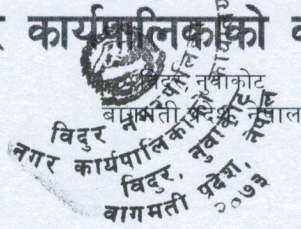 र कार्यपालिकाको क
विदुर नुवाकोट
बागमती प्रदेश नेपाल
विदुर नगरपालिका
नगर कार्यपालिकाको कार्यालय
विदुर, नुवाकोट
वागमती प्रदेश, नेपाल
२०७३